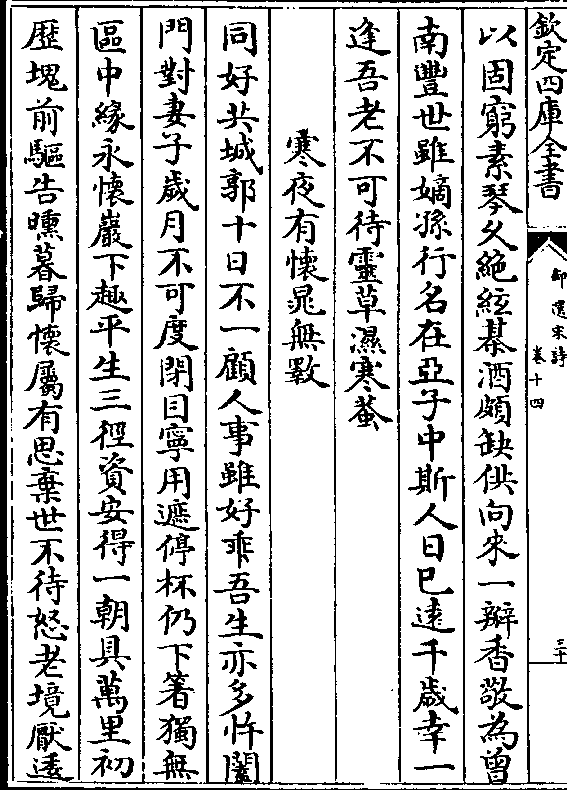 欽定四庫全書
御選宋詩
卷十四
三十
以固窮素琴久絶絃棊酒頗缺供向來一瓣香敬為曾
南豐世雖嫡孫行名在亞子中斯人日已遠千歲幸一
逢吾老不可待靈草濕寒蛩
寒夜有懷晁無斁
同好共城郭十日不一顧人事雖好乖吾生亦多忤闔
門對妻子歲月不可度閉目寧用遮停杯仍下箸獨無
區中緣永懷巖下趣平生三徑資安得一朝具萬里初
歴塊前驅告曛暮歸懷屬有思棄世不待怒老境厭逺